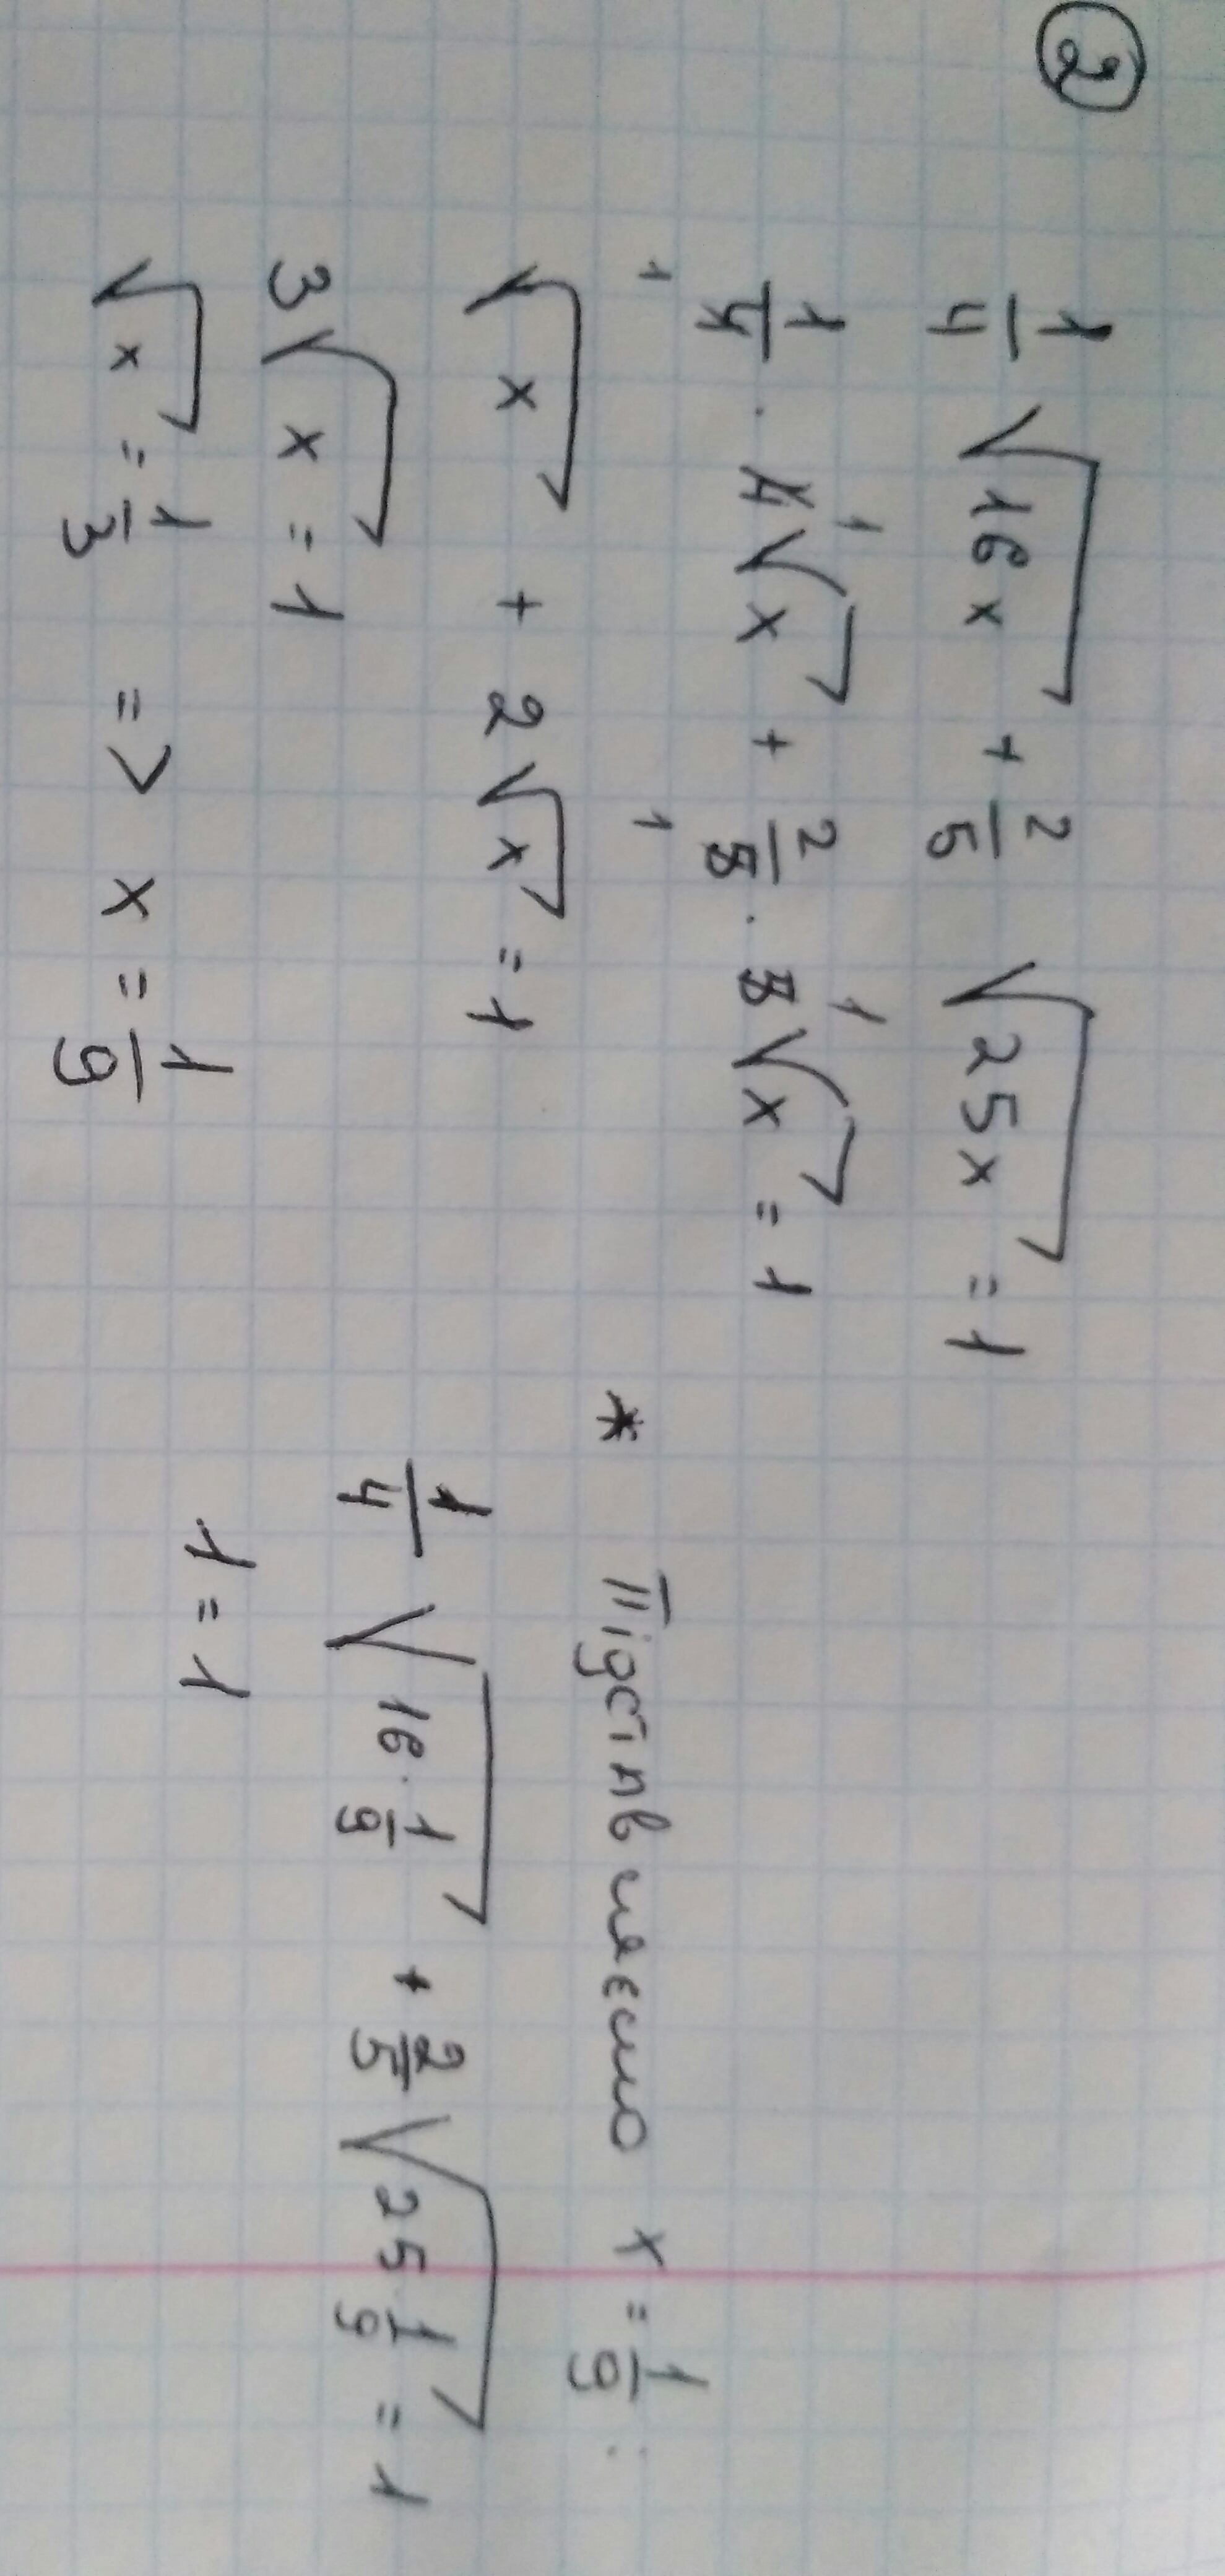 2
1/4 √16x + 2/5 √25x = 1
1/4 · 4√x + 2/5 · 5√x = 1
1 1 1 1
√x + 2√x = 1
3√x = 1
√x = 1/3 => x = 1/9
* Підставляємо x = 1/9 :
1/4 √16 · 1/9 + 2/5 √25 · 1/9 = 1
1 = 1